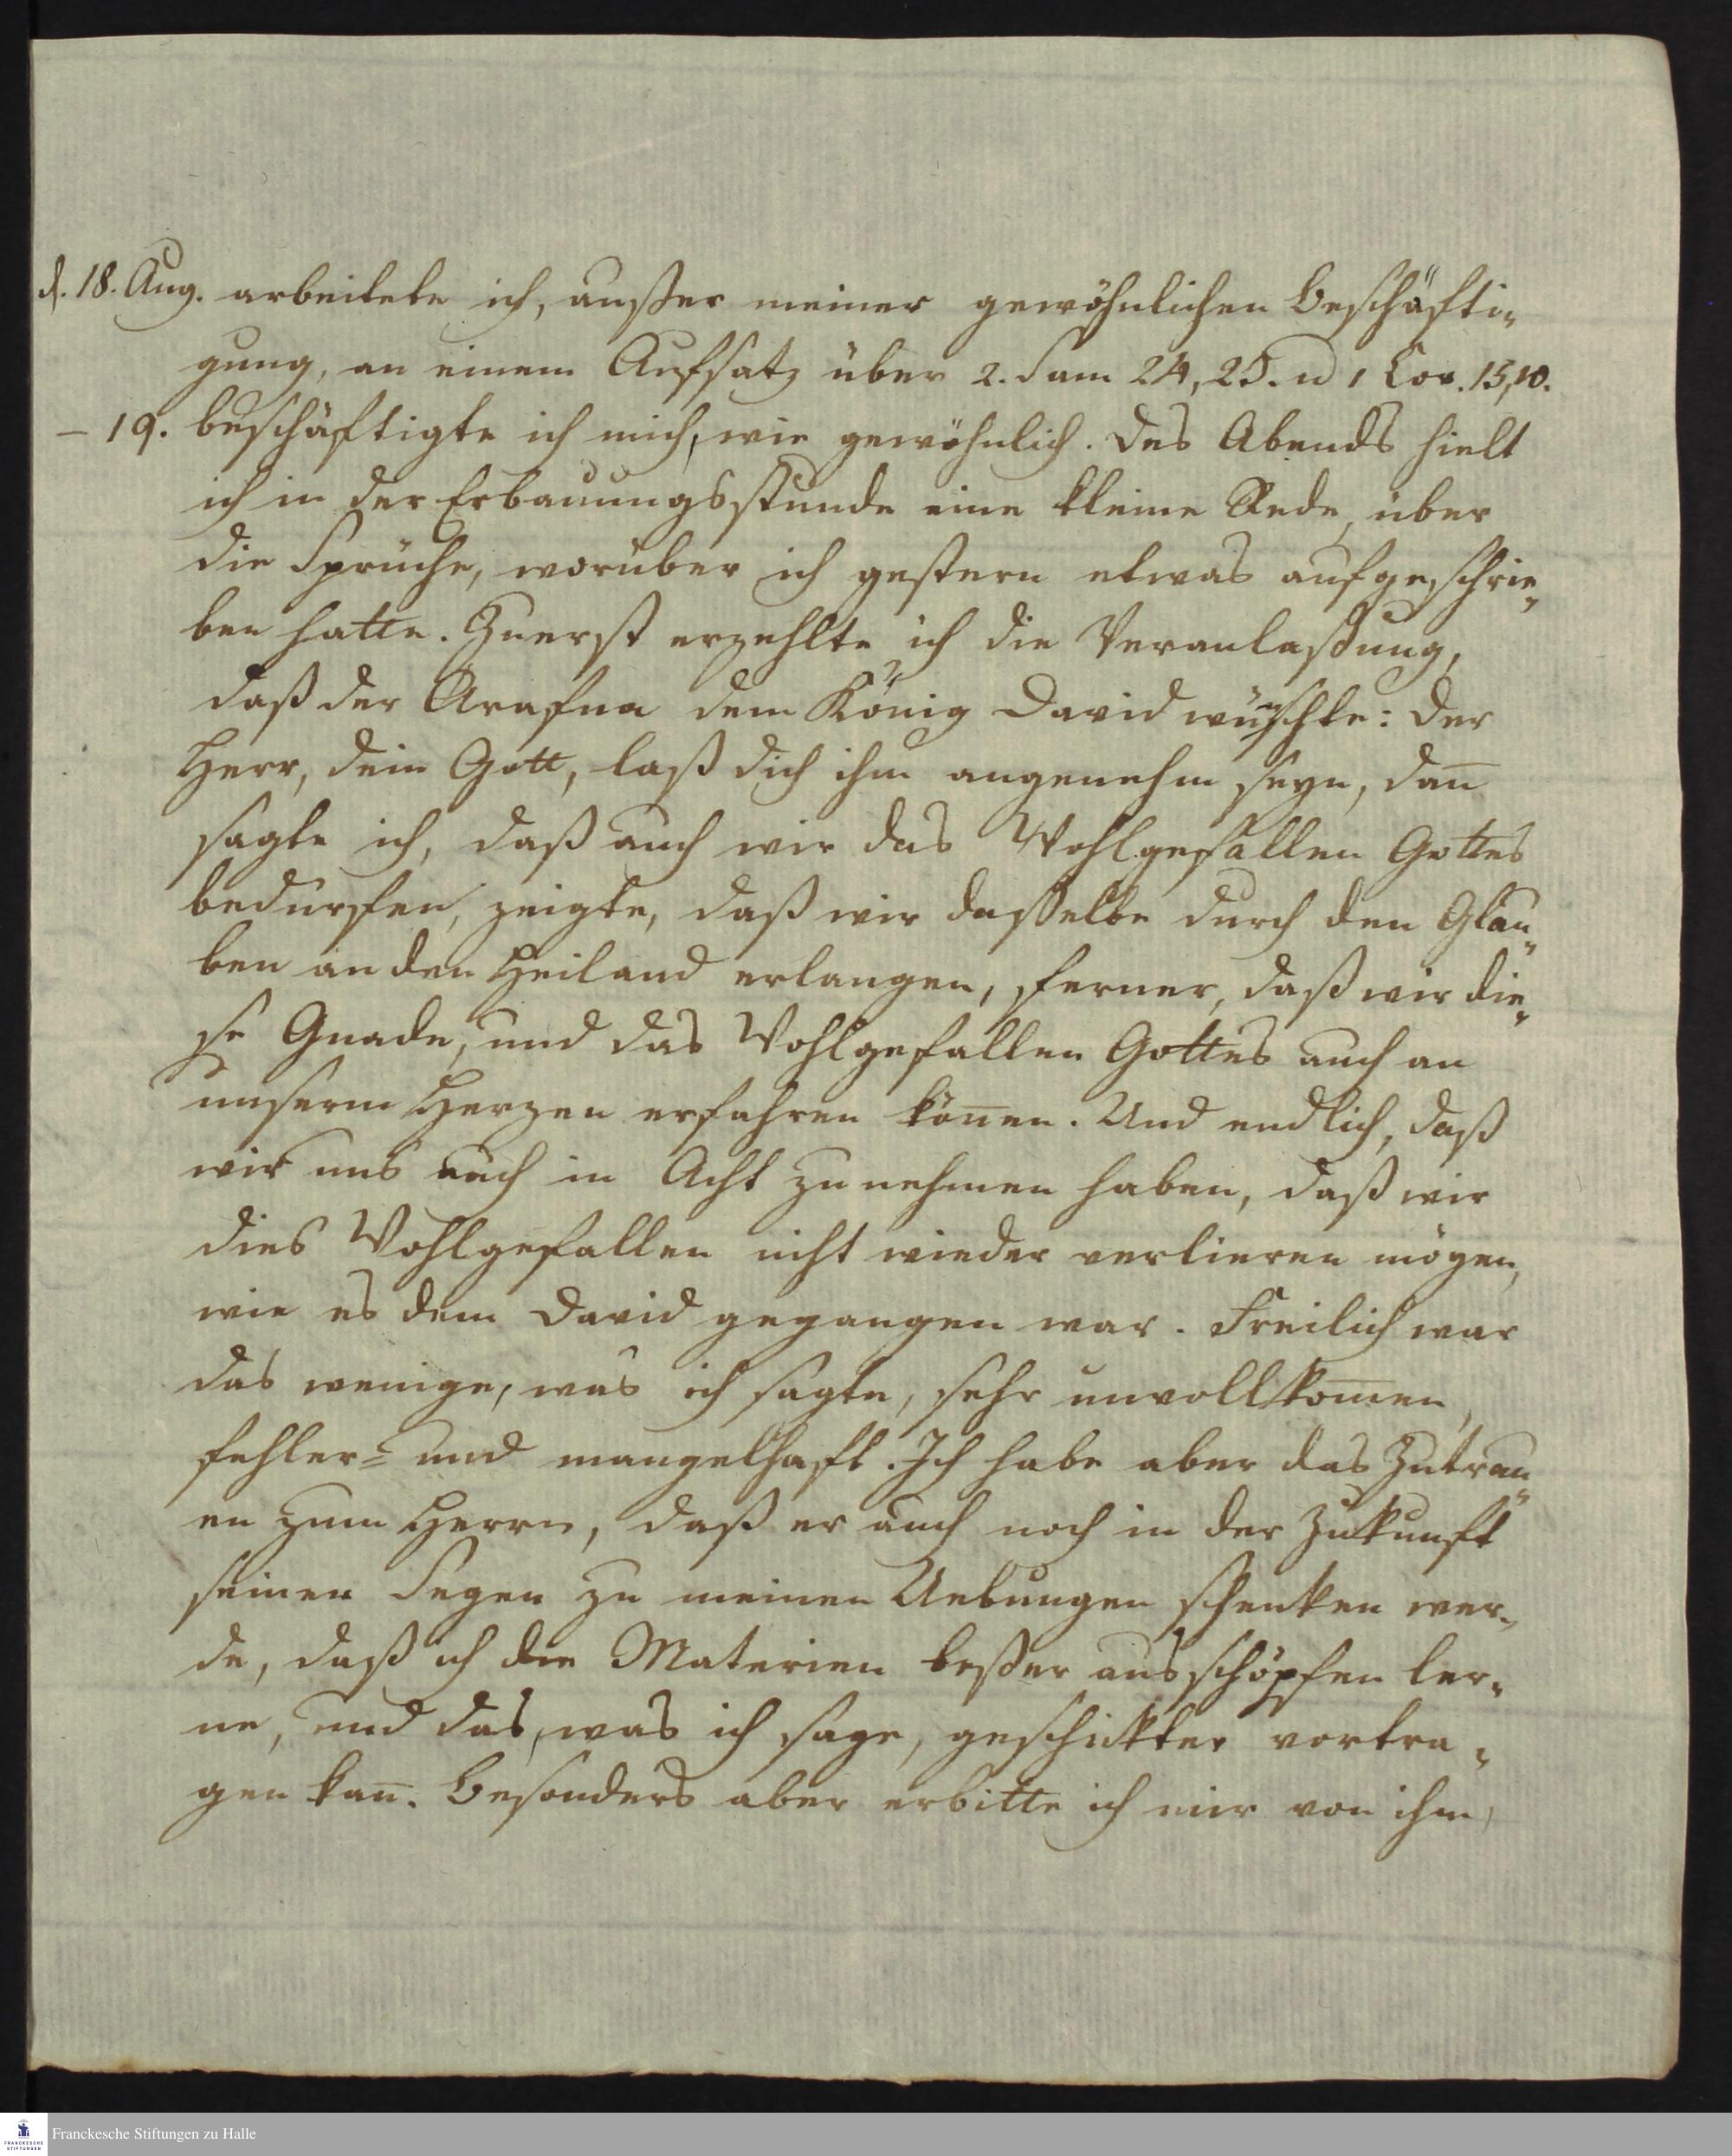 d. 18. Aug. arbeitete ich, außer meiner gewöhnlichen Beschäfti„
gung, an einem Aufsatz über 2. Sam 24, 25. u 1 Cor. 15,10.
– 19. beschäftigte ich mich, wie gewöhnlich. Des Abends hielt
ich in der Erbauungsstunde eine kleine Rede, über
die Sprüche, worüber ich gestern etwas aufgeschrie„
ben hatte. Zuerst erzehlte ich die Veranlaßung,
daß der Arafna dem König David wünschte: Der
Herr, dein Gott, laß dich ihm angenehm seyn, dan̅
sagte ich, daß auch wir das Wohlgefallen Gottes
bedürfen, zeigte, daß wir dasselbe durch den Glau„
ben an den Heiland erlangen, ferner, daß wir die„
se Gnade, und das Wohlgefallen Gottes auch an
unserm Herzen erfahren kön̅en. Und endlich, daß
wir uns auch in Acht zu nehmen haben, daß wir
dies Wohlgefallen nicht wieder verlieren mögen,
wie es dem David gegangen war. Freilich war
das wenige, was ich sagte, sehr unvollkom̅en,
fehler= und mangelhaft. Ich habe aber das Zutrau„
en zum Herrn, daß er auch noch in der Zukunft
seinen Segen zu meinen Uebungen schenken wer„
de, daß ich die Materien beßer ausschöpfen ler„
ne, und das, was ich sage, geschickter vortra„
gen kan̅. Besonders aber erbitte ich mir von ihm,
Franckesche Stiftungen zu Halle
FRANCKESCHE
STIFTUNGEN